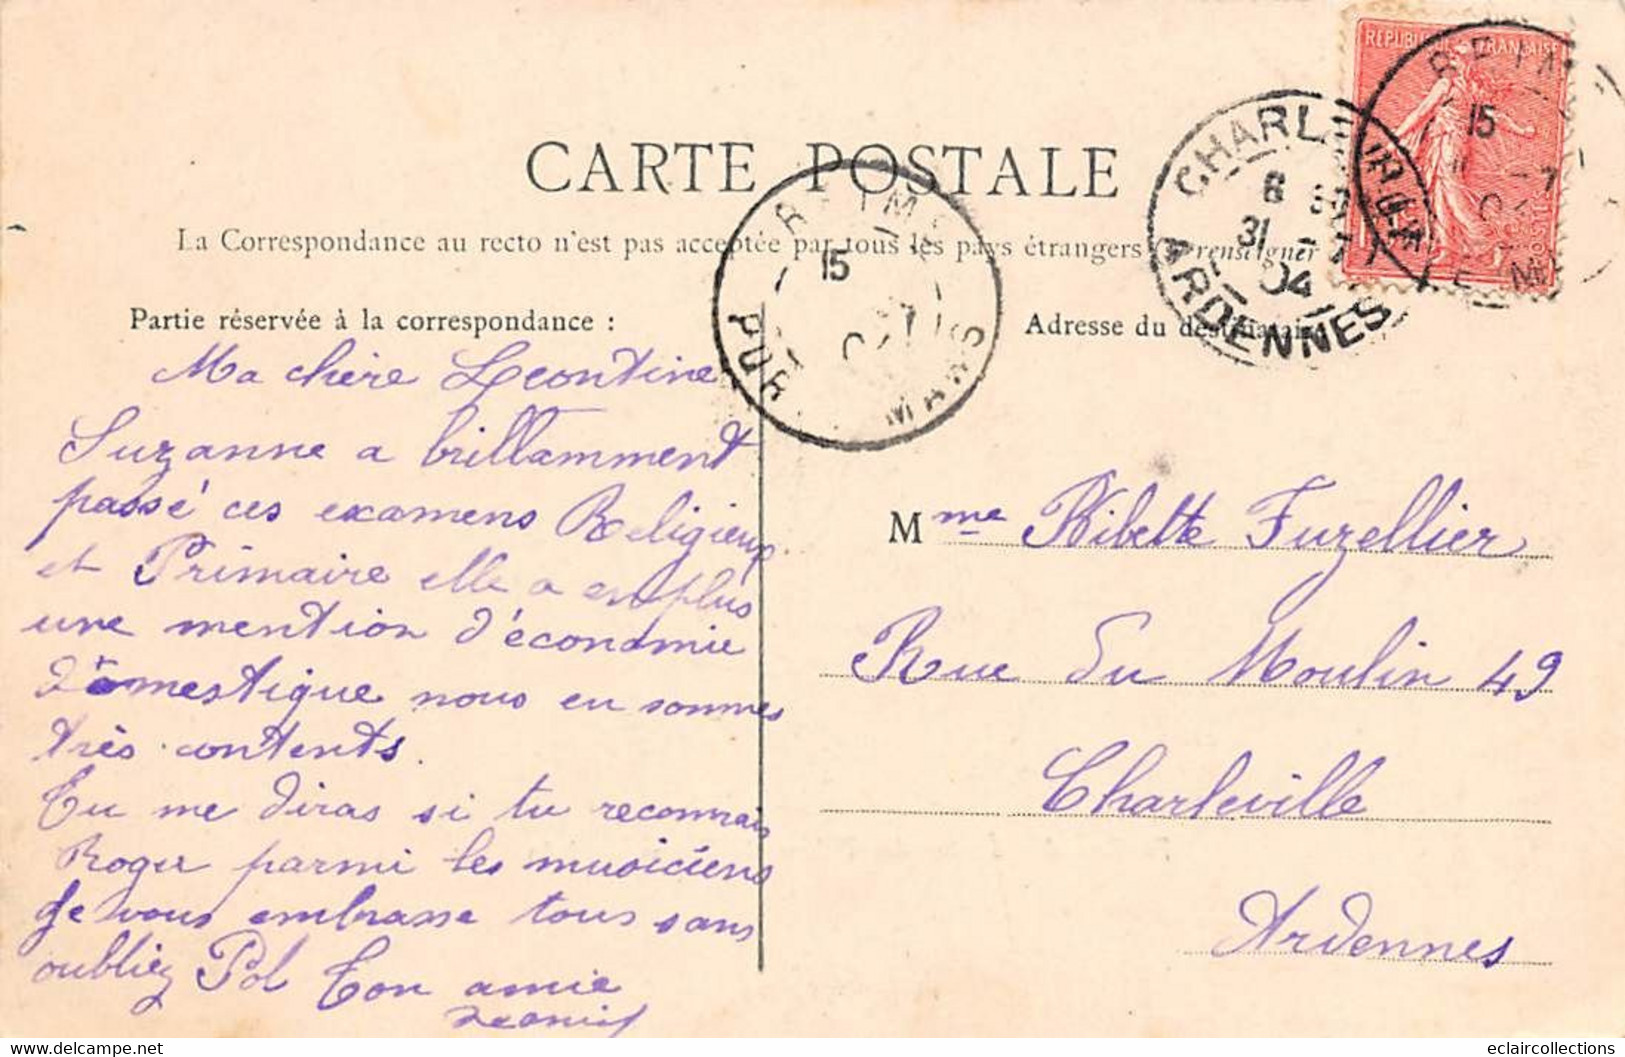 CARTE POSTALE
La Correspondance au recto n'est pas acceptée par tous les pays étrangers
Partie réservée à la correspondance :
Adresse du destinataire
REPUBLIQUE FRANÇAISE
POSTES
REIMS
15
MARS
CHARLEVILLE
6
31 - 7
04
ARDENNES
15
7
Ma chère Leontine
Suzanne a brillamment
passé ces examens Religieux
et Primaire elle a en plus
une mention d'économie
domestique nous en sommes
très contents.
Tu me diras si tu reconnais
Roger parmi les musiciens
Je vous embrasse tous sans
oubliez Pol Ton amie
Mme Ribette Fuzellier
Rue du Moulin 49
Charleville
Ardennes
delcampe.net
eclaircollections